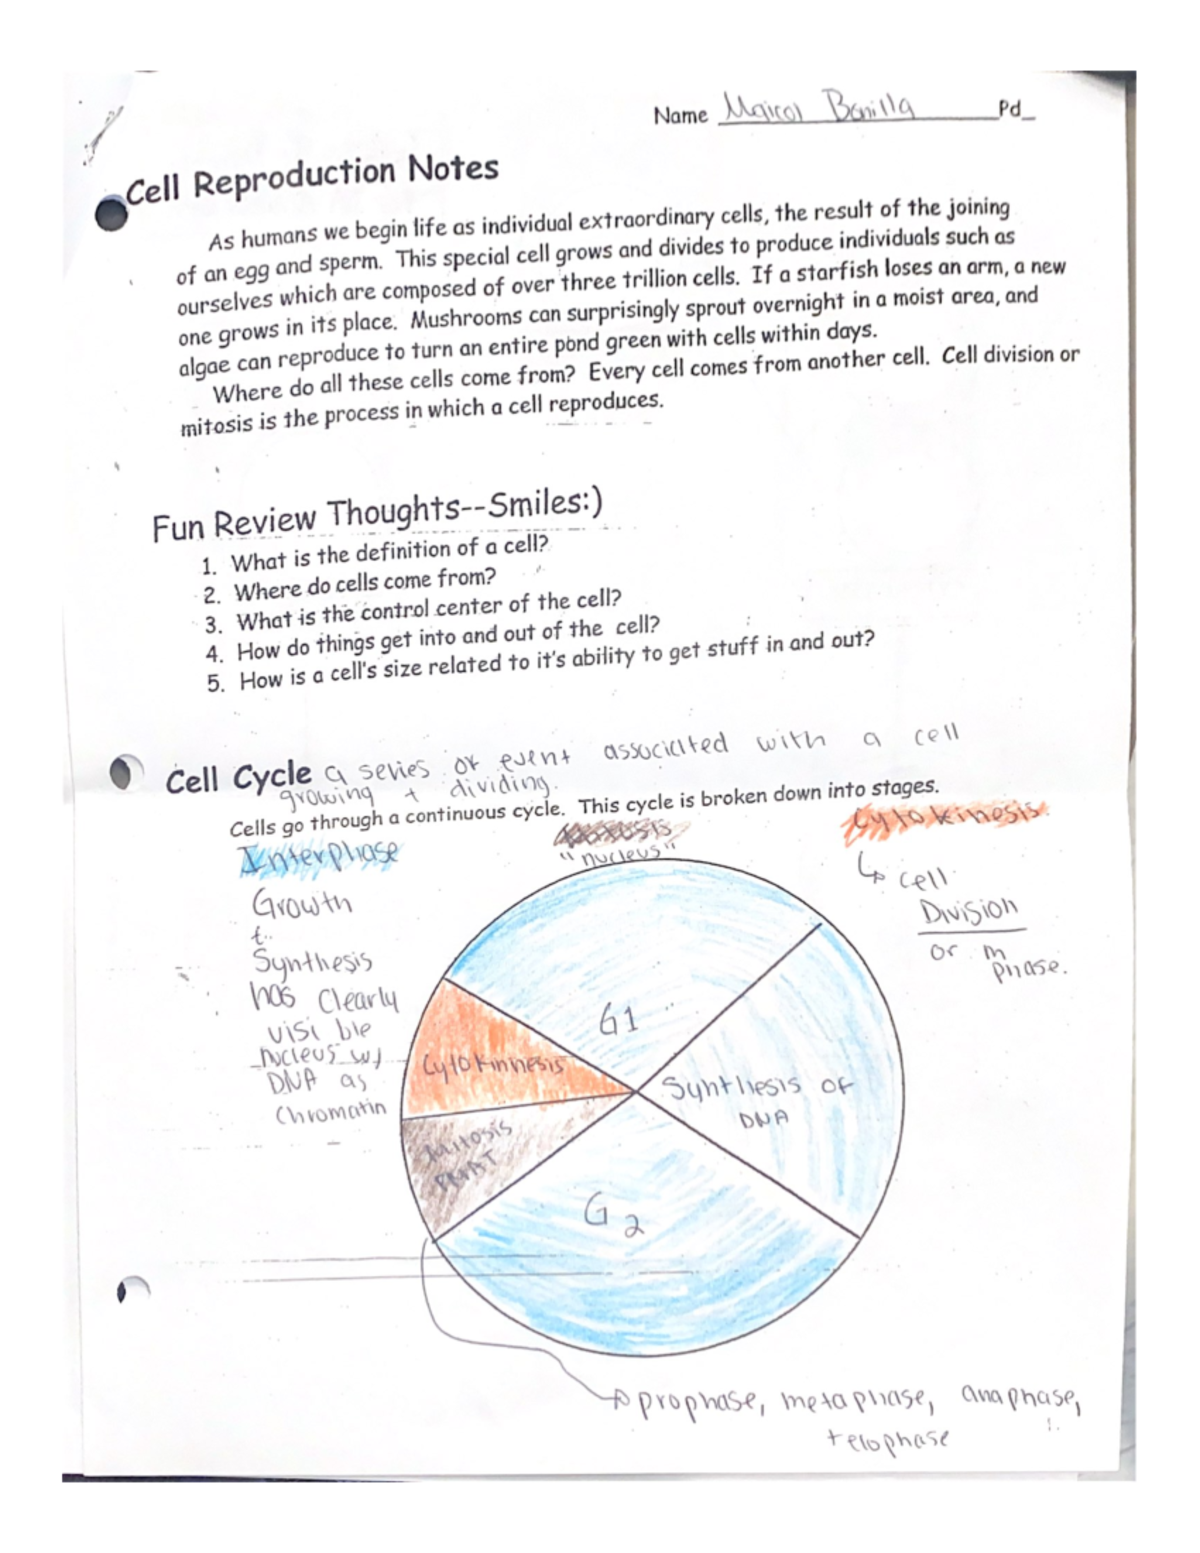 Name Maicol Bonilla Pd_
Cell Reproduction Notes
As humans we begin life as individual extraordinary cells, the result of the joining
of an egg and sperm. This special cell grows and divides to produce individuals such as
ourselves which are composed of over three trillion cells. If a starfish loses an arm, a new
one grows in its place. Mushrooms can surprisingly sprout overnight in a moist area, and
algae can reproduce to turn an entire pond green with cells within days.
Where do all these cells come from? Every cell comes from another cell. Cell division or
mitosis is the process in which a cell reproduces.
Fun Review Thoughts--Smiles:)
1. What is the definition of a cell?
2. Where do cells come from?
3. What is the control center of the cell?
4. How do things get into and out of the cell?
5. How is a cell's size related to it's ability to get stuff in and out?
Cell Cycle a series or event associated with a cell
growing + dividing.
Cells go through a continuous cycle. This cycle is broken down into stages.
Interphase
Growth
+
Synthesis
has clearly
visible
nucleus w/
DNA as
Chromatin
Mitosis
"nucleus"
Cytokinesis
↳ cell
Division
or m
phase.
G1
Cytokinnesis
Synthesis of
DNA
Mitosis
PMAT
G2
→ prophase, metaphase, anaphase,
telophase